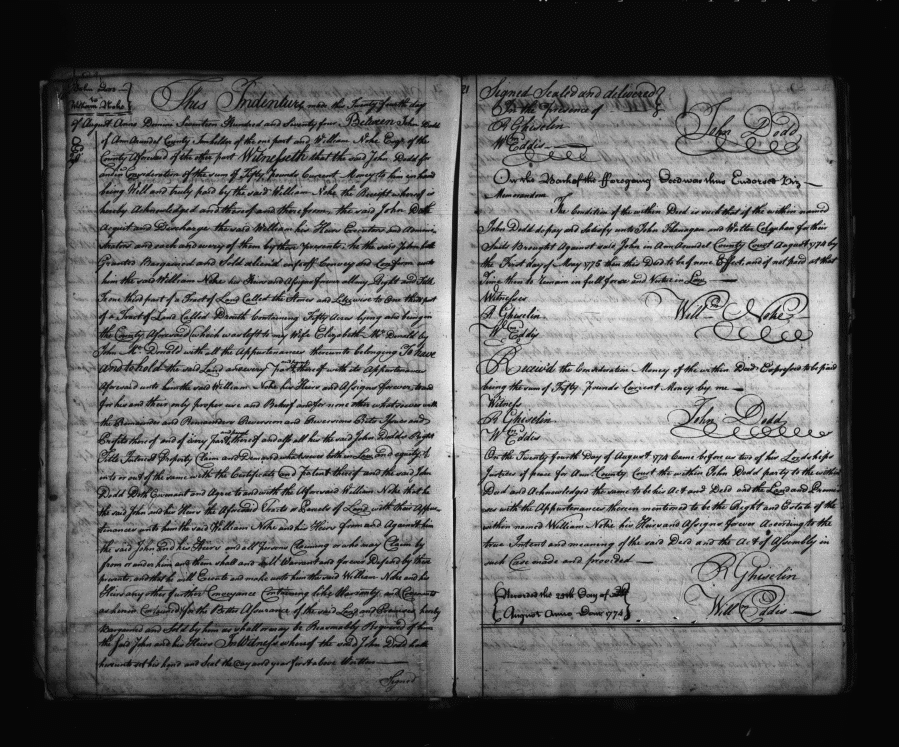 John Dodd
to
William Noke
This Indenture made this Twenty fourth day
of August Anno Domini Seventeen Hundred and Seventy four Between John Dodd
of Ann Arundel County Innholder of the one part and William Noke Esqr. of the
County Aforesaid of the other part Witnesseth that the said John Dodd for
and in Consideration of the sum of Fifty Pounds Current Money to him in hand
being Well and truly paid by the said William Noke the Receipt whereof is
hereby Acknowledged and thereof and therefrom the said John Doth
Acquit and Discharge the said William his Heirs Executors and Adminis
trators and each and every of them by these presents he the said John hath
Granted Bargained and Sold aliened enfeoff Convey and Confirm unto
him the said William Noke his Heirs and Assigns forever all my Right and Title
to one third part of a Tract of Land Called the and Likewise to One third part
of a Tract of Land Called Containing Fifty Acres lying and being in
the County Aforesaid (which was left to my Wife Elizabeth McDonald by
John McDonald with all the Appurtenances thereunto belonging To have
and to hold the said Land and every part and parcel thereof with its Appurtenances
Aforesaid unto him the said William Noke his Heirs and Assigns forever, to and
for his and their only proper use and Behoof and for none other whatsoever with
the Remainder and Remainders Reversion and Reversions Rents Issues and
Profits thereof and of every part and parcel thereof and also all his the said John Dodds Right
Title Interest Property Claim and Demand whatsoever both in Law and equity to
unto or out of the same with the Certificate and patent thereof and the said John
Dodd Doth Covenant and Agree to and with the Aforesaid William Noke that he
the said John and his Heirs the Aforesaid Tracts or Parcels of Land with their Appur
tenances unto him the said William Noke and his Heirs from and Against him
the said John and his Heirs and all Persons Claiming or who may Claim by
from or under him and them shall and will Warrant and forever Defend by these
presents, and that he will Execute and make unto him the said William Noke and his
Heirs any other further Conveyance Containing like Warranty and Covenants
as herein Contained for the Better Assurance of the said Land and Premises hereby
Bargained and Sold by him as shall or may be Reasonably Required of him
the said John and his Heirs In Witness whereof the said John Dodd hath
hereunto set his hand and Seal the Day and year first above Written
Signed
Signed Sealed and delivered
In the presence of
R Ghiselin
W Eddis
John Dodd
On the Back of the foregoing Deed was thus Endorsed Viz
Memorandum
The Condition of the within Deed is such that if the within named
John Dodd do pay and Satisfy unto John Flanagan and Walter for their
Suits Brought Against said John in Ann Arundel County Court August 1774 by
the First day of May 1775 then this Deed to be of none Effect, and if not paid at that
Time then to remain in full force and Virtue in Law
Witnesses
R Ghiselin
W Eddis
Willm. Noke
Receiv'd the Consideration Money of the within Deed Expressed to be paid
being the sum of Fifty Pounds Current Money by me
Witness
R Ghiselin
W Eddis
John Dodd
On the Twenty fourth Day of August 1774 Came before us two of his Lordships
Justices of peace for Ann County Court the within John Dodd party to the within
Deed and Acknowledged the same to be his Act and Deed and the Land and Premi
ses with the Appurtenances therein mentioned to be the Right and Estate of the
within named William Noke his Heirs and Assigns forever According to the
true Intent and meaning of the said Deed and the Act of Assembly in
such Case made and provided
R Ghiselin
Will Eddis
Recorded the 29th Day of
August Anno Dom 1774